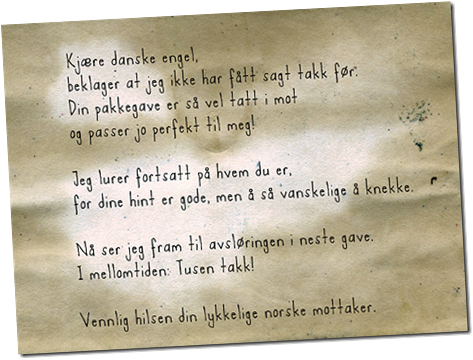 Kjære danske engel,
beklager at jeg ikke har fått sagt takk før.
Din pakkegave er så vel tatt i mot
og passer jo perfekt til meg!
Jeg lurer fortsatt på hvem du er,
for dine hint er gode, men å så vanskelige å knekke.
Nå ser jeg fram til avsløringen i neste gave.
I mellomtiden: Tusen takk!
Vennlig hilsen din lykkelige norske mottaker.